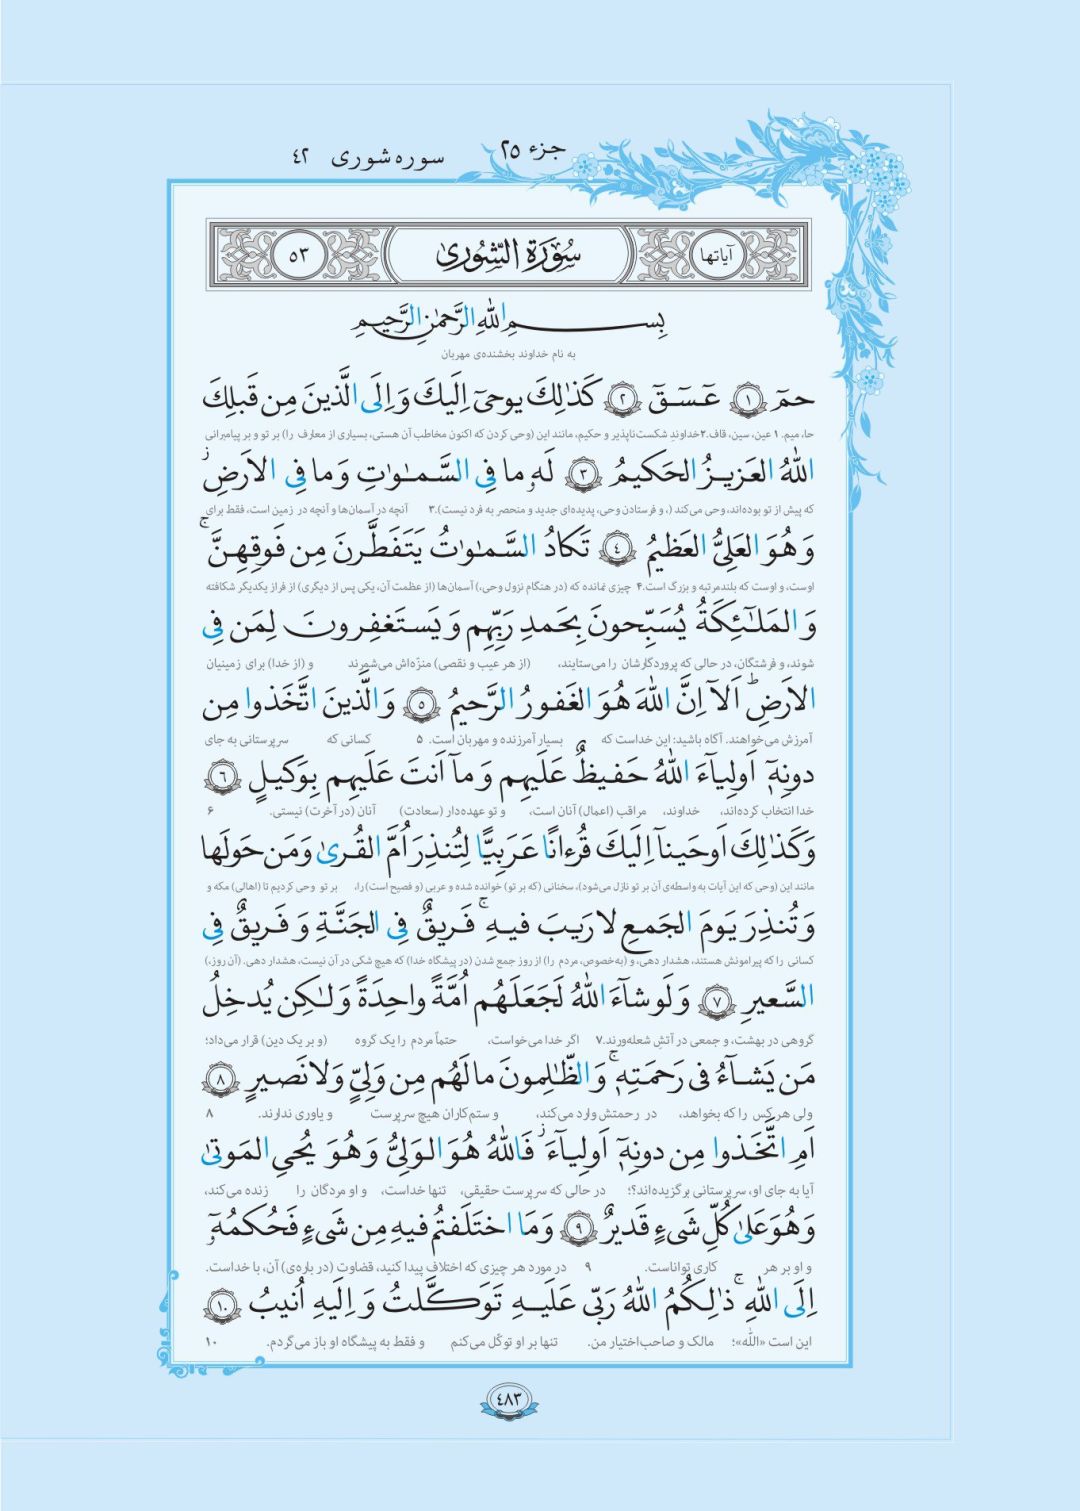 جزء ۲۵
سوره شوری ۴۲
آیاتها سُورَةُ الشّورىٰ ۵۳
بِسـمِ اللّٰهِ الرَّحمٰنِ الرَّحیمِ
به نام خداوند بخشنده‌ی مهربان
حمٓ ﴿۱﴾ عٓسٓقٓ ﴿۲﴾ كَذٰلِكَ یوحیٓ اِلَیكَ وَ اِلَى الَّذینَ مِن قَبلِكَ
حا، میم. ۱ عین، سین، قاف.۲ خداوندِ شکست‌ناپذیر و حکیم، مانند این (وحی کردن که اکنون مخاطب آن هستی، بسیاری از معارف را) بر تو و بر پیامبرانی
اللّٰهُ العَزیزُ الحَكیمُ ﴿۳﴾ لَهٗ ما فِی السَّمٰوٰتِ وَ ما فِی الاَرضِ ۖ
که پیش از تو بوده‌اند، وحی می‌کند (، و فرستادن وحی، پدیده‌ای جدید و منحصر به فرد نیست).۳ آنچه در آسمان‌ها و آنچه در زمین است، فقط برای
وَ هُوَ العَلِیُّ العَظیمُ ﴿۴﴾ تَكادُ السَّمٰوٰتُ یَتَفَطَّرنَ مِن فَوقِهِنَّ ۚ
اوست، و اوست که بلندمرتبه و بزرگ است.۴ چیزی نمانده که (در هنگام نزول وحی،) آسمان‌ها (از عظمت آن، یکی پس از دیگری) از فراز یکدیگر شکافته
وَ المَلٰٓئِكَةُ یُسَبِّحونَ بِحَمدِ رَبِّهِم وَ یَستَغفِرونَ لِمَن فِی
شوند، و فرشتگان، در حالی که پروردگارشان را می‌ستایند، (از هر عیب و نقصی) منزّه‌اش می‌شمرند و (از خدا) برای زمینیان
الاَرضِ ؕ اَلآ اِنَّ اللّٰهَ هُوَ الغَفورُ الرَّحیمُ ﴿۵﴾ وَ الَّذینَ اتَّخَذوا مِن
آمرزش می‌خواهند. آگاه باشید: این خداست که بسیار آمرزنده و مهربان است. ۵ کسانی که سرپرستانی به جای
دونِهٖٓ اَولِیآءَ اللّٰهُ حَفیظٌ عَلَیهِم وَ مآ اَنتَ عَلَیهِم بِوَكیلٍ ﴿۶﴾
خدا انتخاب کرده‌اند، خداوند، مراقب (اعمال) آنان است، و تو عهده‌دار (سعادت) آنان (در آخرت) نیستی. ۶
وَ كَذٰلِكَ اَوحَینآ اِلَیكَ قُرءانًا عَرَبِیًّا لِتُنذِرَ اُمَّ القُرىٰ وَ مَن حَولَها
مانند این (وحی که این آیات به واسطه‌ی آن بر تو نازل می‌شود)، سخنانی (که بر تو) خوانده شده و عربی (و فصیح است) را، بر تو وحی کردیم تا (اهالی) مکه و
وَ تُنذِرَ یَومَ الجَمعِ لا رَیبَ فیهِ ۚ فَریقٌ فِی الجَنَّةِ وَ فَریقٌ فِی
کسانی را که پیرامونش هستند، هشدار دهی، و (به‌خصوص، مردم را) از روز جمع شدن (در پیشگاه خدا) که هیچ شکی در آن نیست، هشدار دهی. (آن روز،)
السَّعیرِ ﴿۷﴾ وَ لَو شآءَ اللّٰهُ لَجَعَلَهُم اُمَّةً واحِدَةً وَ لٰكِن یُدخِلُ
گروهی در بهشت، و جمعی در آتش شعله‌ورند.۷ اگر خدا می‌خواست، حتماً مردم را یک گروه (و بر یک دین) قرار می‌داد؛
مَن یَشآءُ فی رَحمَتِهٖ ۚ وَ الظّٰلِمونَ ما لَهُم مِن وَلِیٍّ وَ لا نَصیرٍ ﴿۸﴾
ولی هر کس را که بخواهد، در رحمتش وارد می‌کند، و ستم‌کاران هیچ سرپرست و یاوری ندارند. ۸
اَمِ اتَّخَذوا مِن دونِهٖٓ اَولِیآءَ ۖ فَاللّٰهُ هُوَ الوَلِیُّ وَ هُوَ یُحیِ المَوتىٰ
آیا به جای او، سرپرستانی برگزیده‌اند؟؛ در حالی که سرپرست حقیقی، تنها خداست، و او مردگان را زنده می‌کند،
وَ هُوَ عَلىٰ كُلِّ شَیءٍ قَدیرٌ ﴿۹﴾ وَ مَا اختَلَفتُم فیهِ مِن شَیءٍ فَحُكمُهٗٓ
و او بر هر کاری تواناست. ۹ در مورد هر چیزی که اختلاف پیدا کنید، قضاوت (درباره‌ی) آن، با خداست.
اِلَى اللّٰهِ ۚ ذٰلِكُمُ اللّٰهُ رَبّی عَلَیهِ تَوَكَّلتُ وَ اِلَیهِ اُنیبُ ﴿۱۰﴾
این است «الله»؛ مالک و صاحب‌اختیار من. تنها بر او توکّل می‌کنم و فقط به پیشگاه او باز می‌گردم. ۱۰
۴۸۳